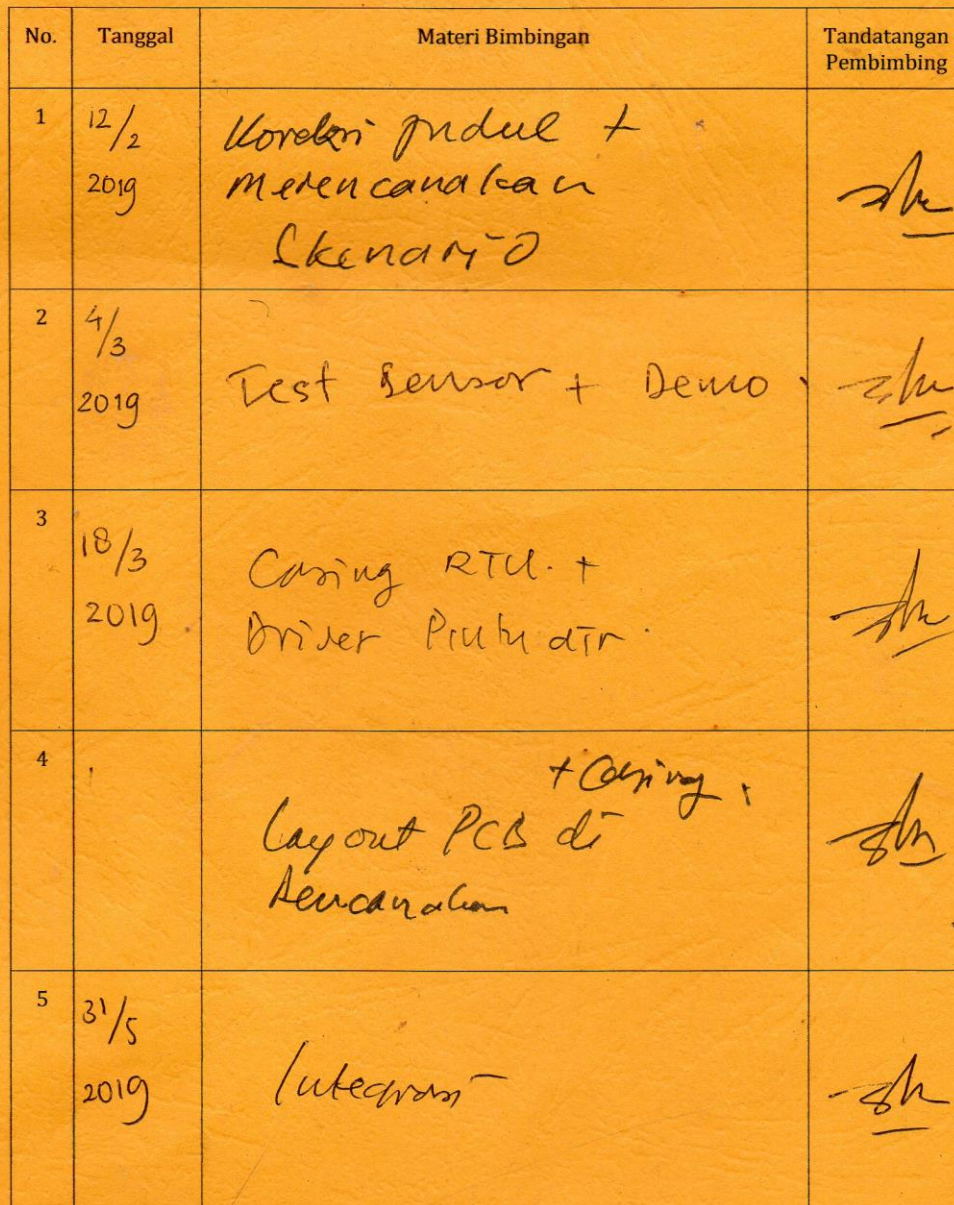 No. Tanggal Materi Bimbingan Tandatangan
Pembimbing
1 12/2 Koreksi judul +
2019 merencanakan
Skenario
2 4/3
2019 Test Sensor + Demo
3 18/3 Casing RTU. +
2019 Driver Pintu air.
4 + Casing.
Layout PCB di
Rencanakan
5 31/5
2019 Integrasi